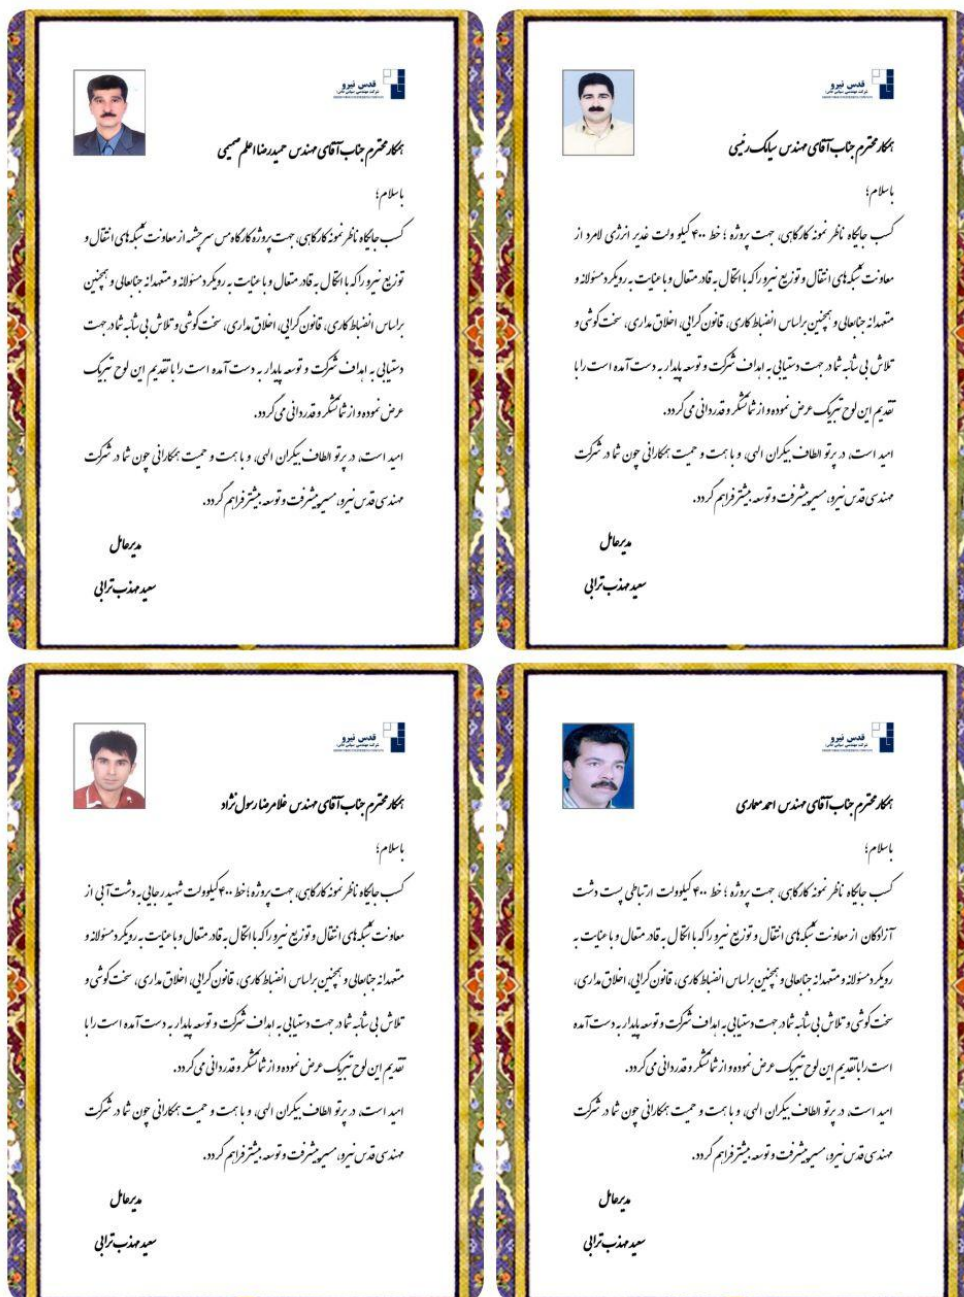 قدس نیرو
همکار محترم جناب آقای مهندس سیامک رئیسی
باسلام؛
کسب جایگاه ناظر نمونه کارگاهی، جهت پروژه ؛ خط ۴۰۰ کیلو ولت غدیر انرژی لامرد از
معاونت شبکه‌های انتقال و توزیع نیرو را که با اتکال به قادر متعال و با عنایت به رویکرد مسئولانه و
متعهدانه جنابعالی و همچنین براساس انضباط کاری، قانون گرایی، اخلاق مداری، سخت کوشی و
تلاش بی شائبه شما در جهت دستیابی به اهداف شرکت و توسعه پایدار به دست آمده است را با
تقدیم این لوح تبریک عرض نموده و از شما تشکر و قدردانی می گردد.
امید است، در پرتو الطاف بیکران الهی، و با همت و حمیت همکارانی چون شما در شرکت
مهندسی قدس نیرو، مسیر پیشرفت و توسعه بیشتر فراهم گردد.
مدیرعامل
سعید مهذب ترابی
قدس نیرو
همکار محترم جناب آقای مهندس حمیدرضا اعلم صمیمی
باسلام؛
کسب جایگاه ناظر نمونه کارگاهی، جهت پروژه کارگاه مس سرچشمه از معاونت شبکه‌های انتقال و
توزیع نیرو را که با اتکال به قادر متعال و با عنایت به رویکرد مسئولانه و متعهدانه جنابعالی و همچنین
براساس انضباط کاری، قانون گرایی، اخلاق مداری، سخت کوشی و تلاش بی شائبه شما در جهت
دستیابی به اهداف شرکت و توسعه پایدار به دست آمده است را با تقدیم این لوح تبریک
عرض نموده و از شما تشکر و قدردانی می گردد.
امید است، در پرتو الطاف بیکران الهی، و با همت و حمیت همکارانی چون شما در شرکت
مهندسی قدس نیرو، مسیر پیشرفت و توسعه بیشتر فراهم گردد.
مدیرعامل
سعید مهذب ترابی
قدس نیرو
همکار محترم جناب آقای مهندس احمد معماری
باسلام؛
کسب جایگاه ناظر نمونه کارگاهی، جهت پروژه ؛ خط ۴۰۰ کیلوولت ارتباطی پست دشت
آزادگان از معاونت شبکه‌های انتقال و توزیع نیرو را که با اتکال به قادر متعال و با عنایت به
رویکرد مسئولانه و متعهدانه جنابعالی و همچنین براساس انضباط کاری، قانون گرایی، اخلاق مداری،
سخت کوشی و تلاش بی شائبه شما در جهت دستیابی به اهداف شرکت و توسعه پایدار به دست آمده
است را با تقدیم این لوح تبریک عرض نموده و از شما تشکر و قدردانی می گردد.
امید است، در پرتو الطاف بیکران الهی، و با همت و حمیت همکارانی چون شما در شرکت
مهندسی قدس نیرو، مسیر پیشرفت و توسعه بیشتر فراهم گردد.
مدیرعامل
سعید مهذب ترابی
قدس نیرو
همکار محترم جناب آقای مهندس غلامرضا رسول نژاد
باسلام؛
کسب جایگاه ناظر نمونه کارگاهی، جهت پروژه ؛ خط ۴۰۰ کیلوولت شهید رجایی به دشت آبی از
معاونت شبکه‌های انتقال و توزیع نیرو را که با اتکال به قادر متعال و با عنایت به رویکرد مسئولانه و
متعهدانه جنابعالی و همچنین براساس انضباط کاری، قانون گرایی، اخلاق مداری، سخت کوشی و
تلاش بی شائبه شما در جهت دستیابی به اهداف شرکت و توسعه پایدار به دست آمده است را با
تقدیم این لوح تبریک عرض نموده و از شما تشکر و قدردانی می گردد.
امید است، در پرتو الطاف بیکران الهی، و با همت و حمیت همکارانی چون شما در شرکت
مهندسی قدس نیرو، مسیر پیشرفت و توسعه بیشتر فراهم گردد.
مدیرعامل
سعید مهذب ترابی